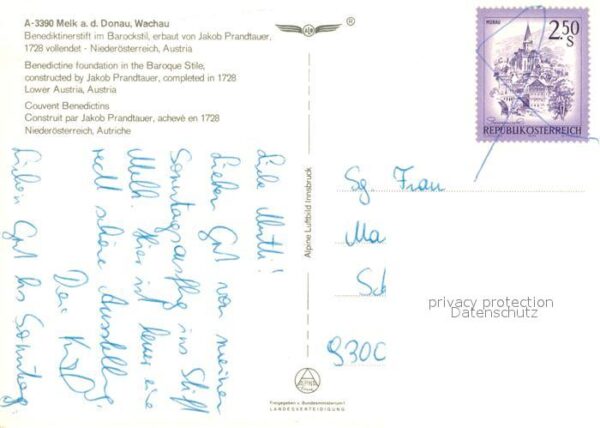 A-3390 Melk a. d. Donau, Wachau
Benediktinerstift im Barockstil, erbaut von Jakob Prandtauer,
1728 vollendet - Niederösterreich, Austria
Benedictine foundation in the Baroque Stile,
constructed by Jakob Prandtauer, completed in 1728
Lower Austria, Austria
Couvent Benedictins
Construit par Jakob Prandtauer, achevé en 1728
Niederösterreich, Autriche
®
MURAU
2.50
S
REPUBLIK ÖSTERREICH
Liebe Mutti!
Lieben Gruß von meinem
Sonntagsausflug ins Stift
Melk. Hier ist heuer eine
recht schöne Ausstellung.
Dein
Lieben Gruß bis Sonntag.
Alpine Luftbild Innsbruck
Sg. Frau
Ma
Sch
9300
privacy protection
Datenschutz
ALPINE
Freigegeben v. Bundesministerium f.
LANDESVERTEIDIGUNG